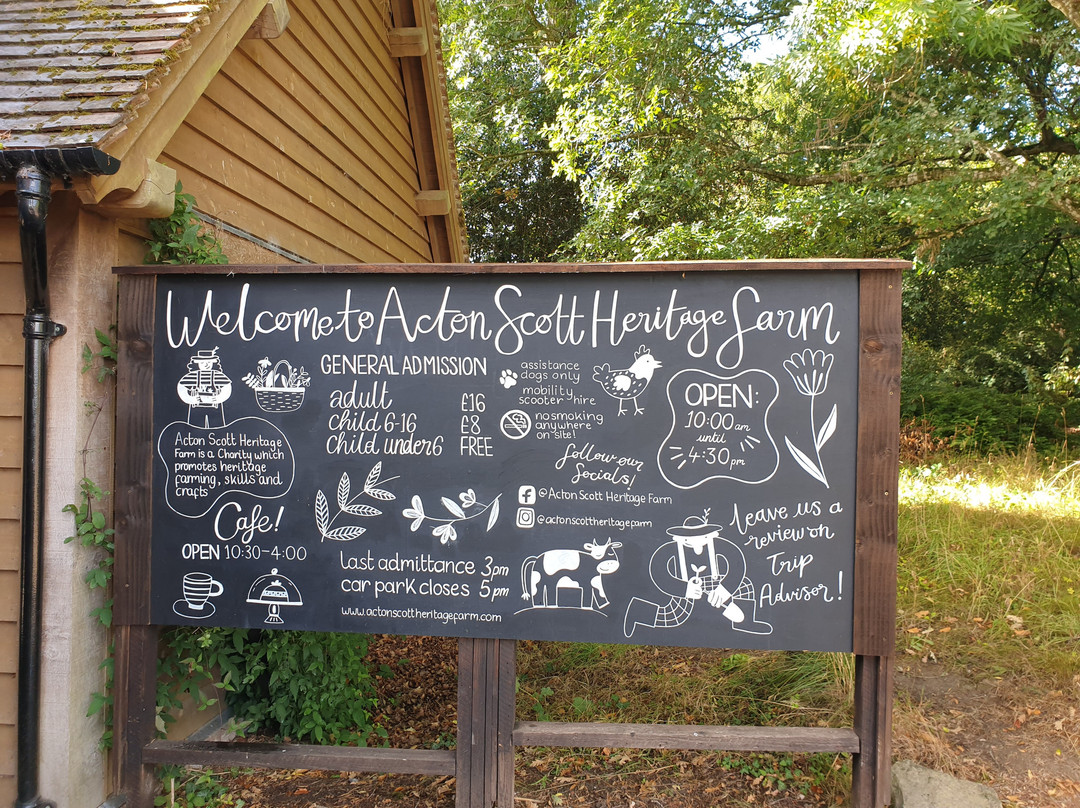 Welcome to Acton Scott Heritage Farm
GENERAL ADMISSION
adult £16
child 6-16 £8
child under 6 FREE
assistance
dogs only
mobility
scooter-hire
no smoking
anywhere
on site!
OPEN:
10:00 am
until
4:30 pm
Acton Scott Heritage
Farm is a Charity which
promotes heritage
farming, skills and
crafts
follow our
Socials!
f @Acton Scott Heritage Farm
@actonscottheritagefarm
Cafe!
OPEN 10:30-4:00
Last admittance 3pm
car park closes 5pm
www.actonscottheritagefarm.com
leave us a
review on
Trip
Advisor!